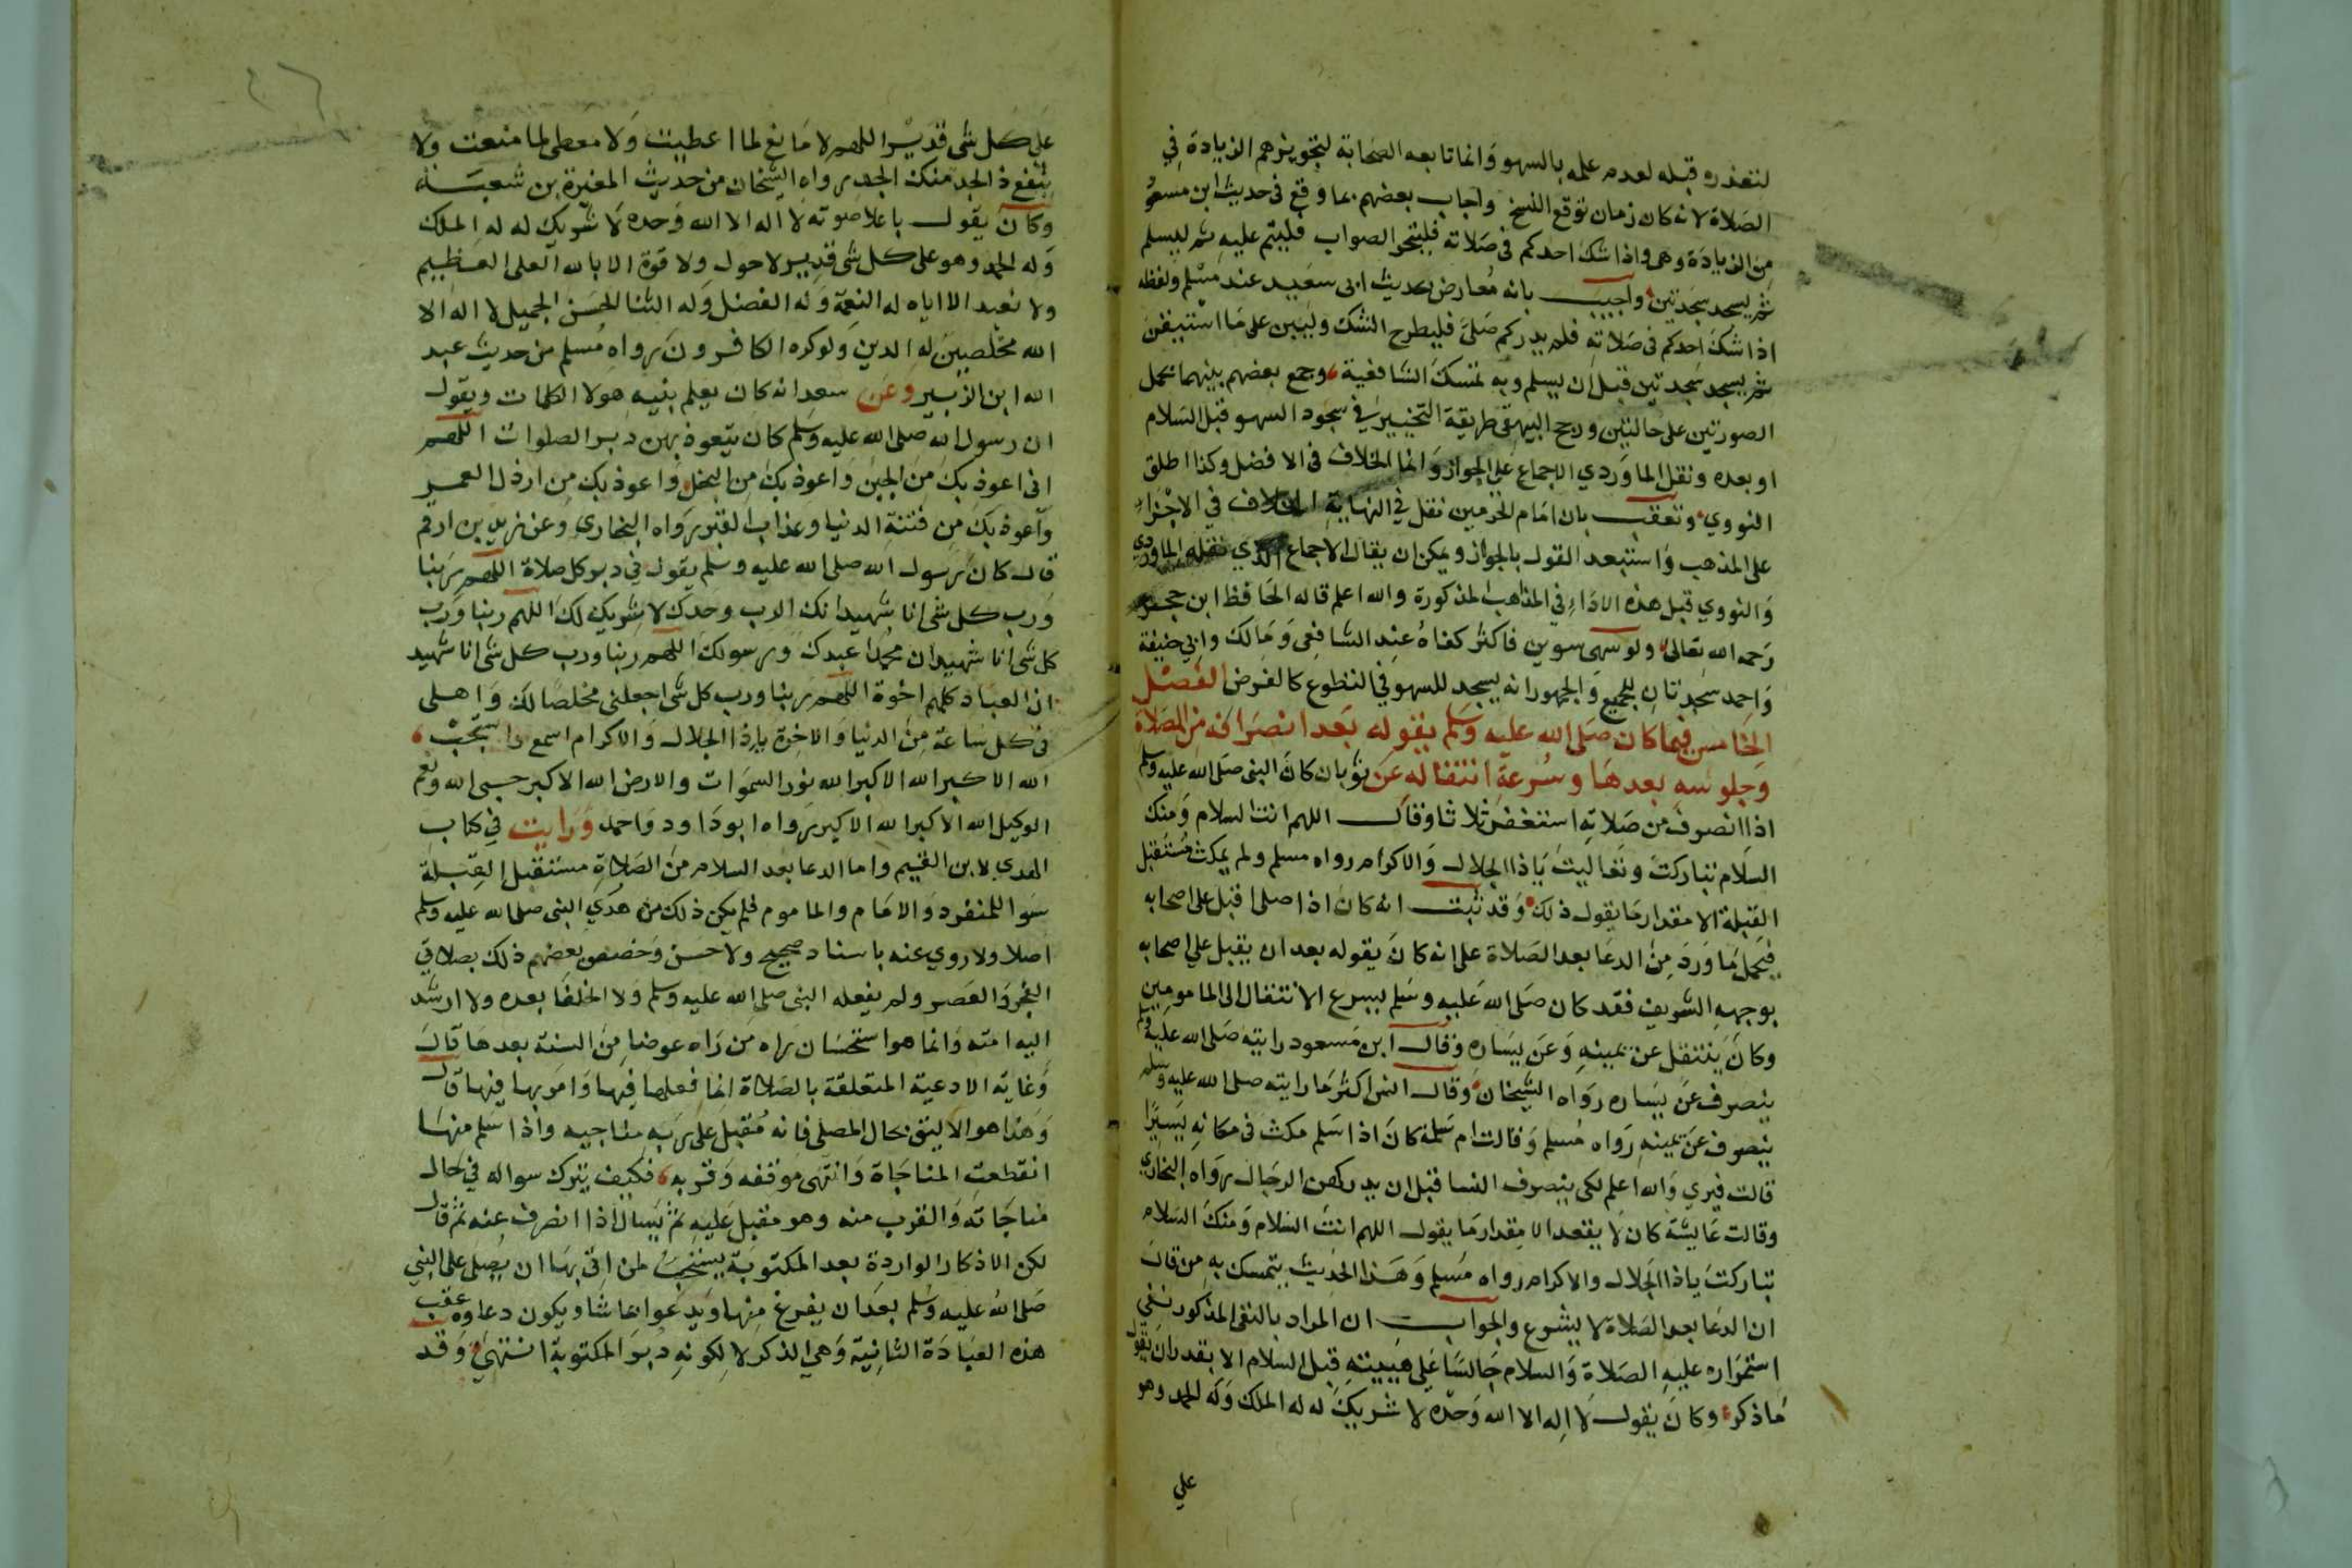 لتعذره قبله لعدم علمه بالسهو وانما تابعه الصحابة لتجويزهم الزيادة في
الصلاة لانه كان زمان توقع النسخ واجاب بعضهم بما وقع في حديث ابن مسعود
من الزيادة وهي واذا شك احدكم في صلاته فليتحر الصواب فليتم عليه ثم ليسلم
ثم يسجد سجدتين واجيب بانه معارض بحديث ابى سعيد عند مسلم ولفظه
اذا شك احدكم في صلاته فلم يدر كم صلى فليطرح الشك وليبن على ما استيقن
ثم يسجد سجدتين قبل ان يسلم وبه تمسك الشافعية وجمع بعضهم بينهما بحمل
الصورتين على حالتين ورجح البيهقي طريقة التخيير في سجود السهو قبل السلام
او بعده ونقل الماوردي الاجماع على الجواز وانما الخلاف في الافضل وكذا اطلق
النووي وتعقب بان امام الحرمين نقل في النهاية الخلاف في الاجزاء
على المذهب واستبعد القول بالجواز ويمكن ان يقال الاجماع الذي نقله الماوردي
والنووي قبل هذه الاداء في المذاهب المذكورة والله اعلم قاله الحافظ ابن حجر
رحمه الله تعالى ولو سهى سهوين فاكثر كفاه عند الشافعي ومالك وابي حنيفة
واحمد سجدتان للجميع والجمهور انه يسجد للسهو في التطوع كالفرض الفصل
الخامس فيما كان صلى الله عليه وسلم يقوله بعد انصرافه من الصلاة
وجلوسه بعدها وسرعة انتقاله عن ثوبان كان النبى صلى الله عليه وسلم
اذا انصرف من صلاته استغفر ثلاثا وقال اللهم انت السلام ومنك
السلام تباركت وتعاليت ياذا الجلال والاكرام رواه مسلم ولم يمكث مستقبل
القبلة الا مقدار ما يقول ذلك وقد ثبت انه كان اذا صلى اقبل على اصحابه
فيحمل ما ورد من الدعا بعد الصلاة على انه كان يقوله بعد ان يقبل على اصحابه
بوجهه الشريف فقد كان صلى الله عليه وسلم يسرع الانتقال الى المامومين
وكان ينتقل عن يمينه وعن يساره وقال ابن مسعود رايته صلى الله عليه وسلم
ينصرف عن يساره رواه الشيخان وقال انس اكثر ما رايته صلى الله عليه وسلم
ينصرف عن يمينه رواه مسلم وقالت ام سلمة كان اذا سلم مكث في مكانه يسيرا
قالت فيرى والله اعلم لكى ينصرف النسا قبل ان يدركهن الرجال رواه البخاري
وقالت عايشة كان لا يقعد الا مقدار ما يقول اللهم انت السلام ومنك السلام
تباركت ياذا الجلال والاكرام رواه مسلم وهذا الحديث يتمسك به من قال
ان الدعا بعد الصلاة لا يشرع والجواب ان المراد بالنفى المذكور نفي
استمراره عليه الصلاة والسلام جالسا على هيئته قبل السلام الا بقدر ان يقول
ما ذكر وكان يقول لا اله الا الله وحده لا شريك له له الملك وله الحمد وهو
على
على كل شى قدير اللهم لا مانع لما اعطيت ولا معطى لما منعت ولا
ينفع ذا الجد منك الجد رواه الشيخان من حديث المغيرة بن شعبة
وكان يقول باعلا صوته لا اله الا الله وحده لا شريك له له الملك
وله الحمد وهو على كل شى قدير لا حول ولا قوة الا بالله العلى العظيم
ولا نعبد الا اياه له النعمة وله الفضل وله الثنا الحسن الجميل لا اله الا
الله مخلصين له الدين ولو كره الكافرون رواه مسلم من حديث عبد
الله ابن الزبير وعن سعد انه كان يعلم بنيه هولا الكلمات ويقول
ان رسول الله صلى الله عليه وسلم كان يتعوذ بهن دبر الصلوات اللهم
انى اعوذ بك من الجبن واعوذ بك من البخل واعوذ بك من ارذل العمر
واعوذ بك من فتنة الدنيا وعذاب القبر رواه البخارى وعن زيد بن ارقم
قال كان رسول الله صلى الله عليه وسلم يقول في دبر كل صلاة اللهم ربنا
ورب كل شى انا شهيد انك الرب وحدك لا شريك لك اللهم ربنا ورب
كل شى انا شهيد ان محمدا عبدك ورسولك اللهم ربنا ورب كل شى انا شهيد
ان العباد كلهم اخوة اللهم ربنا ورب كل شى اجعلنى مخلصا لك واهلى
في كل ساعة من الدنيا والاخرة ياذا الجلال والاكرام اسمع واستجب
الله الاكبر الله الاكبر الله نور السموات والارض الله الاكبر حسبى الله ونعم
الوكيل الله الاكبر الله الاكبر رواه ابو داود واحمد ورايت في كتاب
الهدي لابن القيم واما الدعا بعد السلام من الصلاة مستقبل القبلة
سوا للمنفرد والامام والماموم فلم يكن ذلك من هدي النبى صلى الله عليه وسلم
اصلا ولا روي عنه باسناد صحيح ولا حسن وخصص بعضهم ذلك بصلاتى
الفجر والعصر ولم يفعله النبى صلى الله عليه وسلم ولا الخلفا بعده ولا ارشد
اليه امته وانما هو استحسان راه من راه عوضا من السنة بعدها قال
وغاية الادعية المتعلقة بالصلاة انما فعلها فيها وامر بها فيها قال
وهذا هو الاليق بحال المصلى فانه مقبل على ربه مناجيه واذا سلم منها
انقطعت المناجاة وانتهى موقفه وقربه فكيف يترك سواله في حال
مناجاته والقرب منه وهو مقبل عليه ثم يسال اذا انصرف عنه ثم قال
لكن الاذكار الواردة بعد المكتوبة يستحب لمن اتى بها ان يصلى على النبي
صلى الله عليه وسلم بعد ان يفرغ منها ويدعوا بما شا ويكون دعاوه عقب
هذه العبادة الثانية وهي الذكر لا لكونه دبر المكتوبة انتهى وقد